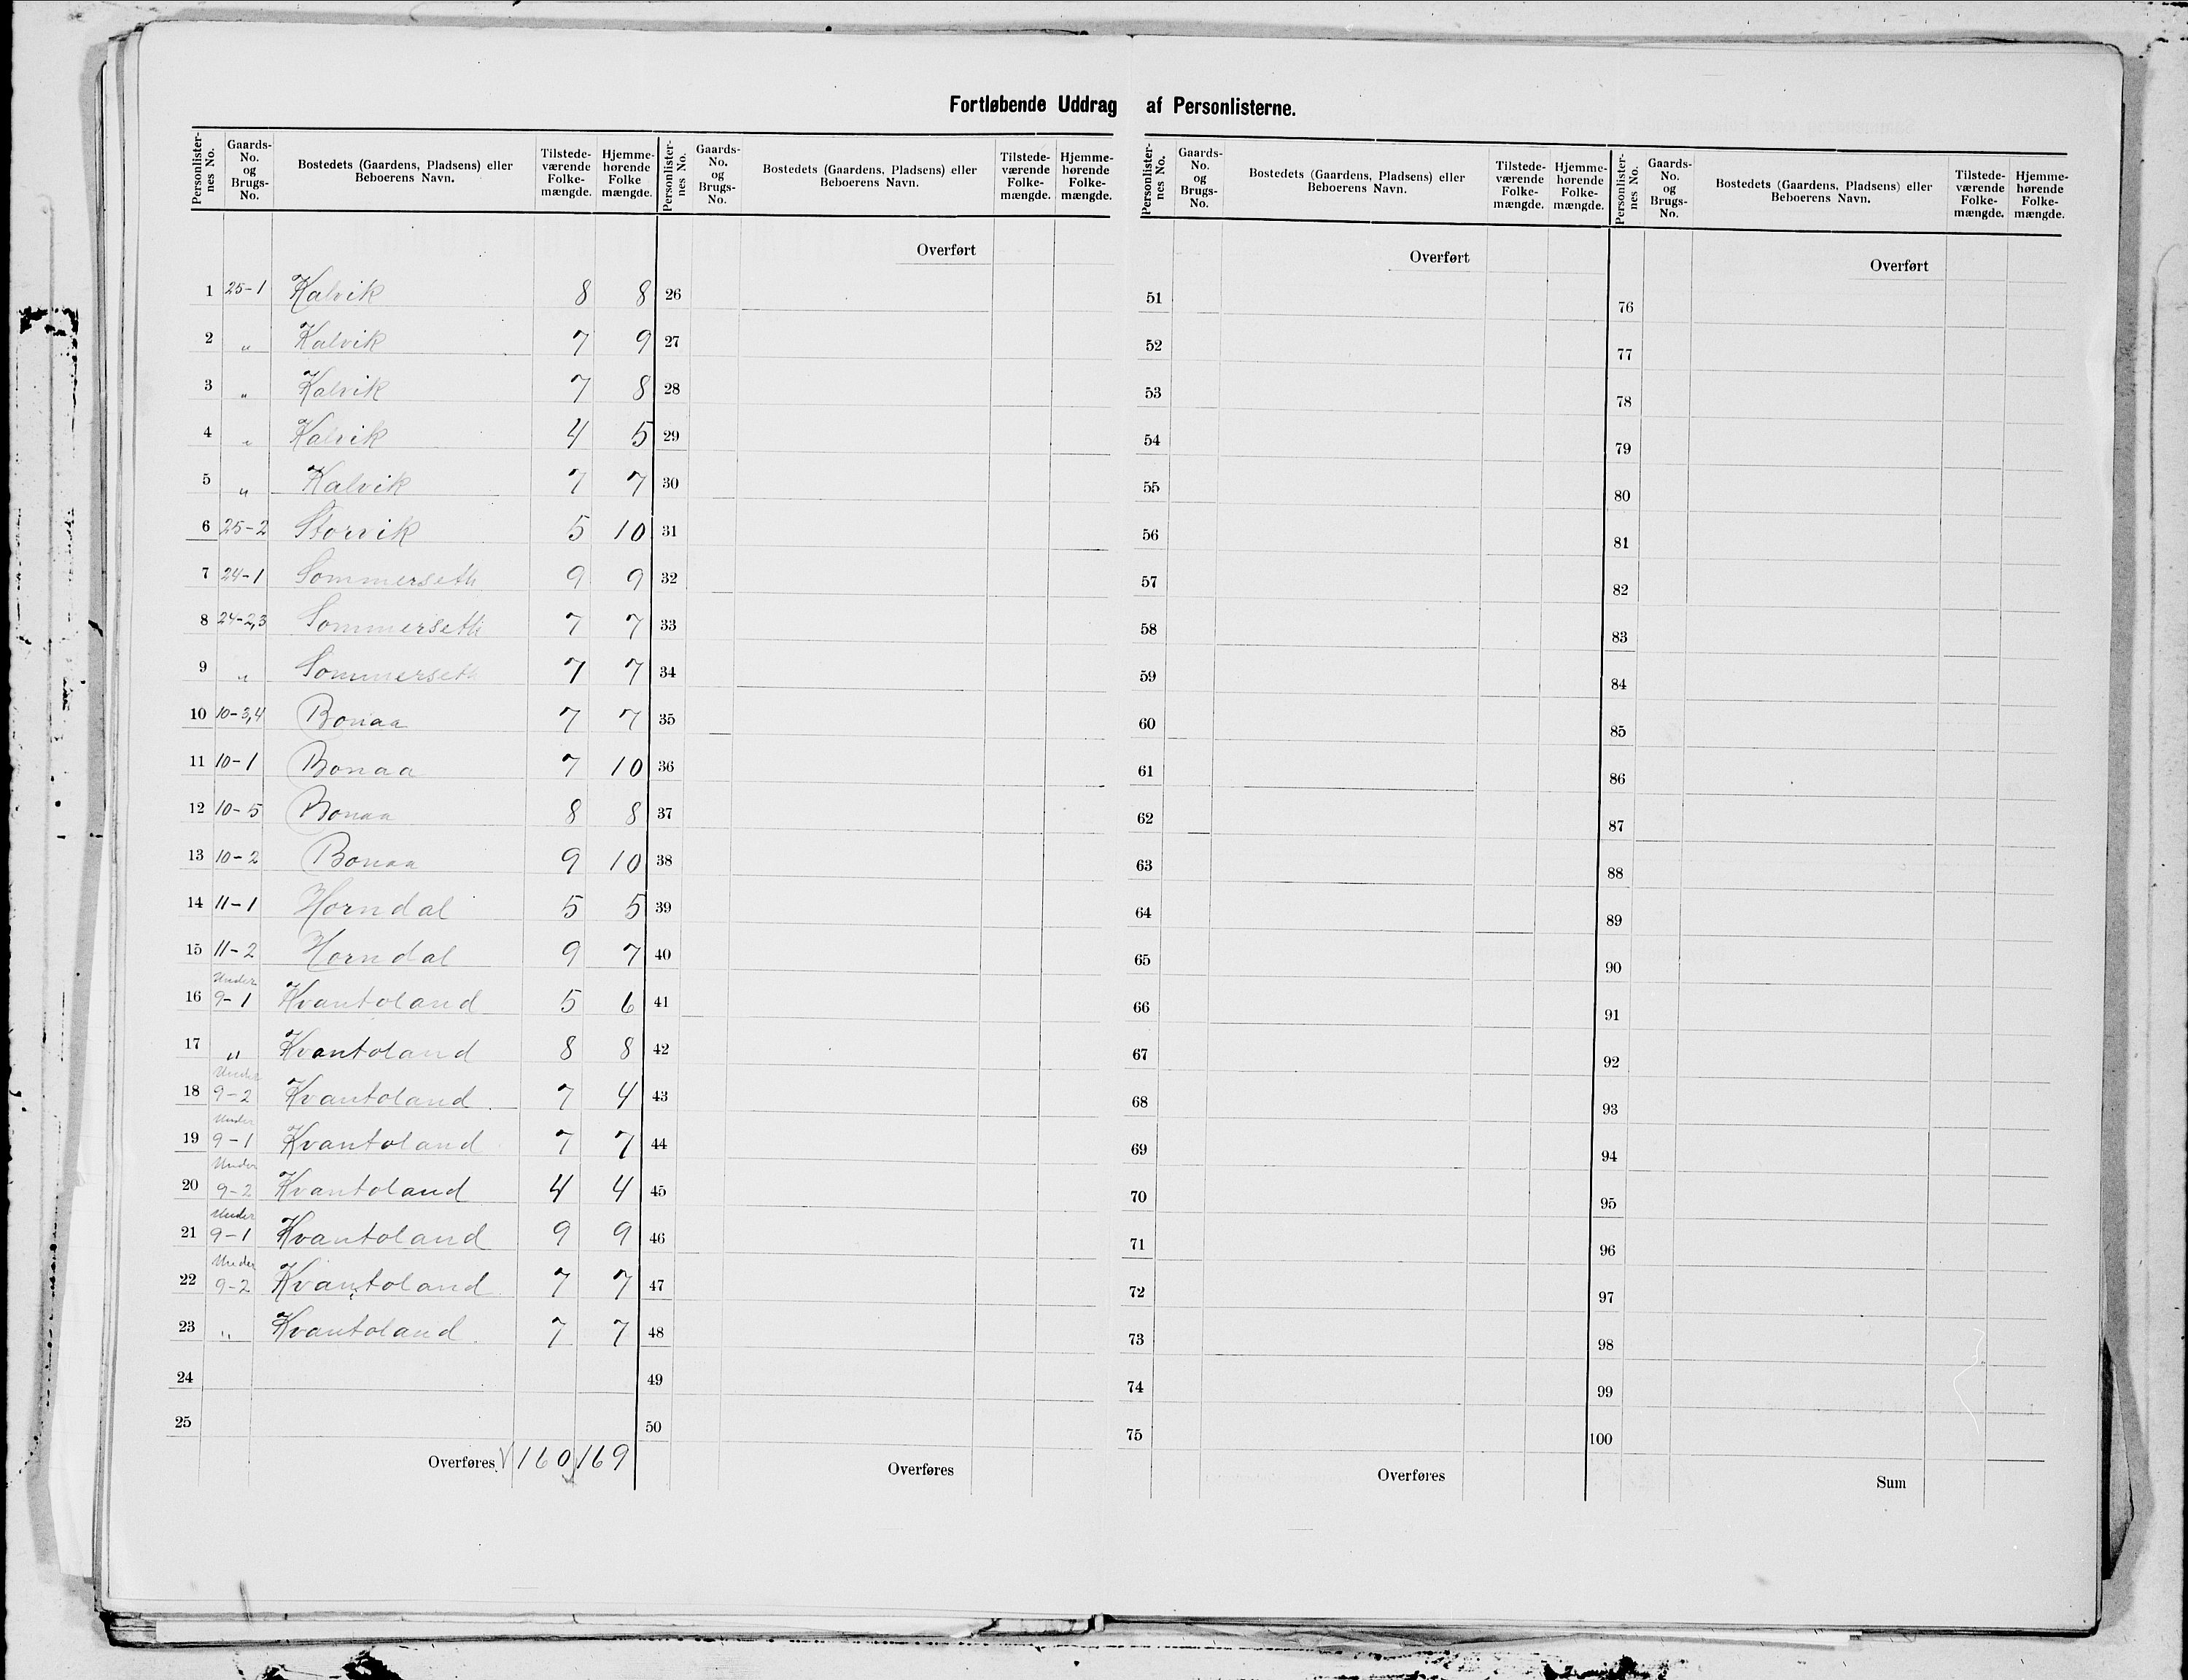 Fortløbende Uddrag af Personlisterne.
Personlister-nes No. Gaards-No. og Brugs-No. Bostedets (Gaardens, Pladsens) eller Beboerens Navn. Tilstede-værende Folke-mængde. Hjemme-hørende Folke mængde. Personlister-nes No. Gaards-No. og Brugs-No. Bostedets (Gaardens, Pladsens) eller Beboerens Navn. Tilstede-værende Folke-mængde. Hjemme-hørende Folke-mængde. Personlister-nes No. Gaards-No. og Brugs-No. Bostedets (Gaardens, Pladsens) eller Beboerens Navn. Tilstede-værende Folke-mængde. Hjemme-hørende Folke-mængde. Personlister-nes No. Gaards-No. og Brugs-No. Bostedets (Gaardens, Pladsens) eller Beboerens Navn. Tilstede-værende Folke-mængde. Hjemme-hørende Folke-mængde.
1 25-1 Kalvik 8 8
2 „ Kalvik 7 9
3 „ Kalvik 7 8
4 „ Kalvik 4 5
5 „ Kalvik 7 7
6 25-2 Storvik 5 10
7 24-1 Sommerseth 9 9
8 24-2,3 Sommerseth 7 7
9 „ Sommerseth 7 7
10 10-3,4 Bonaa 7 7
11 10-1 Bonaa 7 10
12 10-5 Bonaa 8 8
13 10-2 Bonaa 9 10
14 11-1 Horndal 5 5
15 11-2 Horndal 9 7
16 Under 9-1 Kvantoland 5 6
17 „ Kvantoland 8 8
18 Under 9-2 Kvantoland 7 4
19 Under 9-1 Kvantoland 7 7
20 Under 9-2 Kvantoland 4 4
21 Under 9-1 Kvantoland 9 9
22 Under 9-2 Kvantoland 7 7
23 „ Kvantoland 7 7
24
25
Overføres 160 169
Overført
26
27
28
29
30
31
32
33
34
35
36
37
38
39
40
41
42
43
44
45
46
47
48
49
50
Overføres
Overført
51
52
53
54
55
56
57
58
59
60
61
62
63
64
65
66
67
68
69
70
71
72
73
74
75
Overføres
Overført
76
77
78
79
80
81
82
83
84
85
86
87
88
89
90
91
92
93
94
95
96
97
98
99
100
Sum